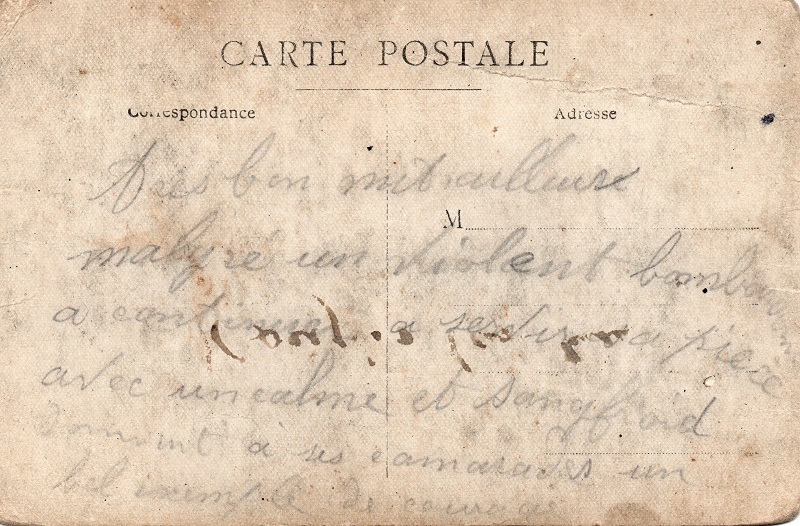 CARTE POSTALE
Correspondance
Adresse
M
Très bon mitrailleur
malgré un violent bombardement
a continuer a servir sa pièce
avec un calme et sang froid
donnant à ses camarades un
bel exemple de courage